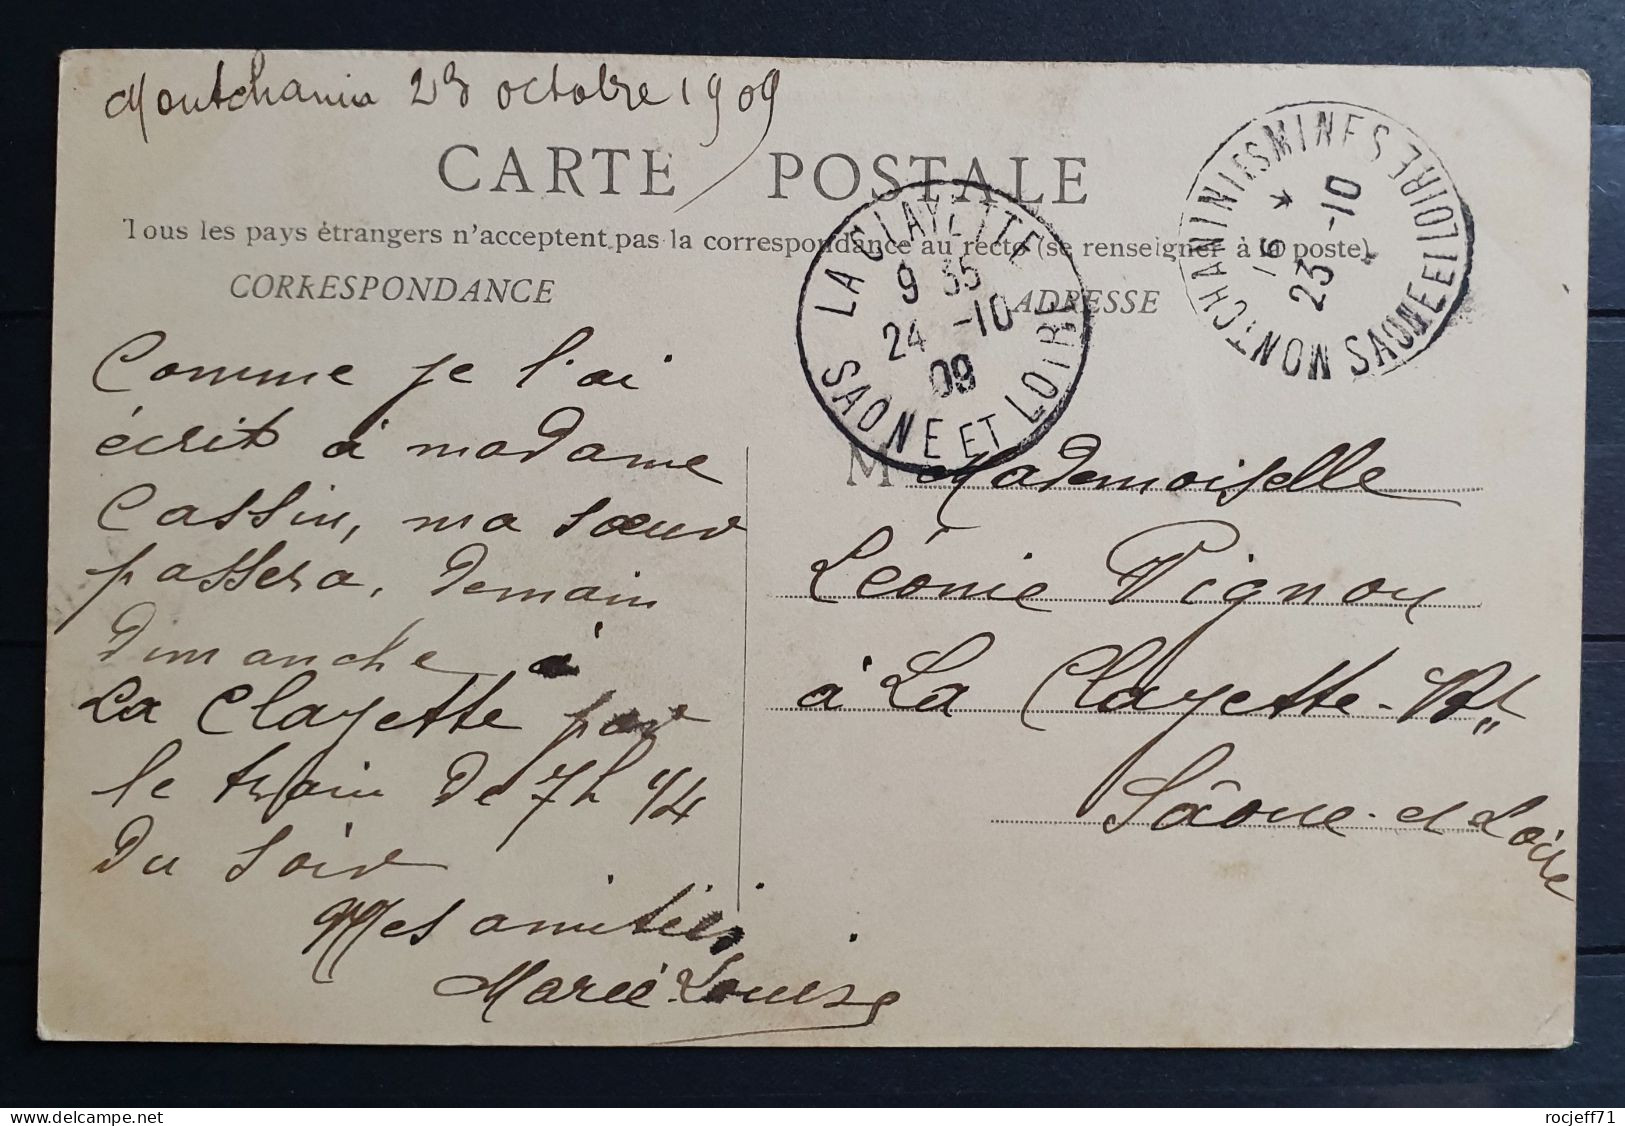 Montchanin 23 octobre 1909
CARTE POSTALE
Tous les pays étrangers n'acceptent pas la correspondance au recto (se renseigner à la poste)
CORRESPONDANCE
ADRESSE
Comme je l'ai
écrit à madame
Cassin, ma sœur
passera, demain
Dimanche à
La Clayette par
le train de 7h 1/4
du soir
Mes amitiés
Marie-Louise
LA CLAYETTE
9 35
24 -10
09
SAONE ET LOIRE
MONTCHANIN LES MINES
16 *
23 -10
SAONE ET LOIRE
M Mademoiselle
Léonie Pignon
à La Clayette
Sâone-et Loire
rocjeff71